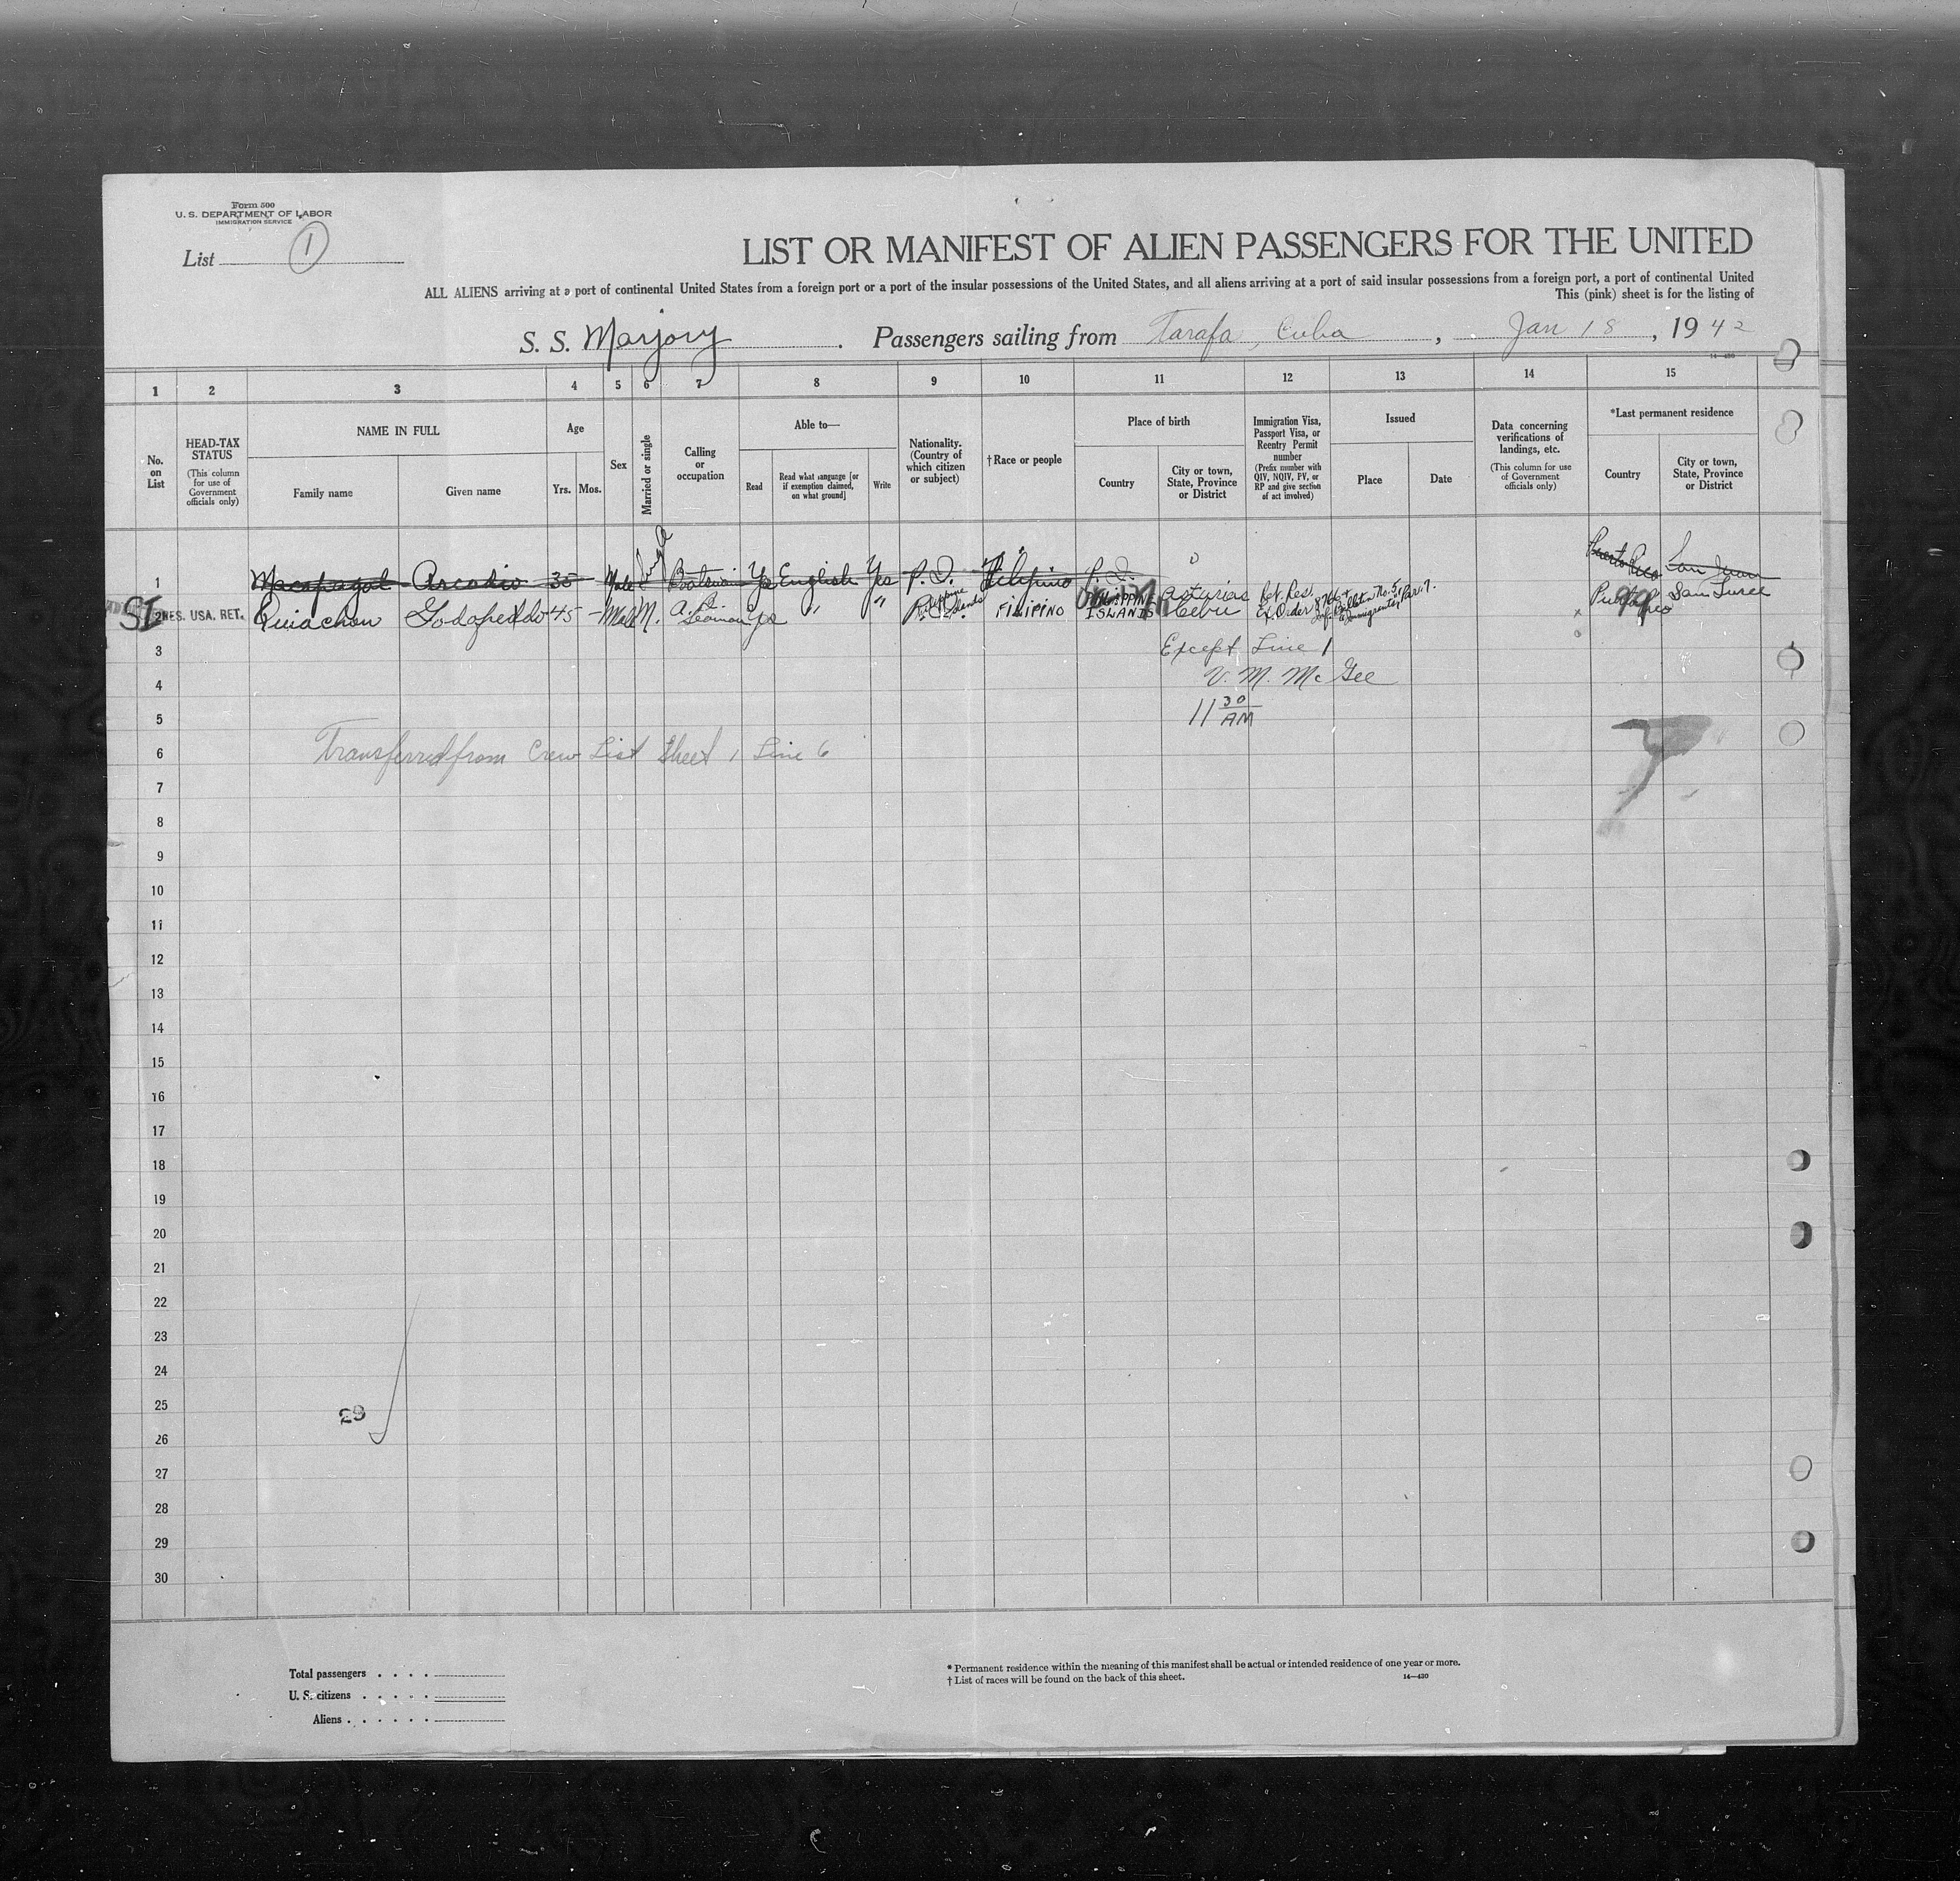 Form 500
U. S. DEPARTMENT OF LABOR
IMMIGRATION SERVICE
List 1
LIST OR MANIFEST OF ALIEN PASSENGERS FOR THE UNITED
ALL ALIENS arriving at a port of continental United States from a foreign port or a port of the insular possessions of the United States, and all aliens arriving at a port of said insular possessions from a foreign port, a port of continental United
This (pink) sheet is for the listing of
S. S. Marjory . Passengers sailing from Tarafa, Cuba , Jan 18 , 1942
14—430
1 2 3 4 5 6 7 8 9 10 11 12 13 14 15
No. on List
HEAD-TAX STATUS
(This column for use of Government officials only)
NAME IN FULL
Family name
Given name
Age
Yrs. Mos.
Sex
Married or single
Calling or occupation
Able to—
Read
Read what language [or if exemption claimed, on what ground]
Write
Nationality. (Country of which citizen or subject)
† Race or people
Place of birth
Country
City or town, State, Province or District
Immigration Visa, Passport Visa, or Reentry Permit number
(Prefix number with QIV, NQIV, PV, or RP and give section of act involved)
Issued
Place
Date
Data concerning verifications of landings, etc.
(This column for use of Government officials only)
*Last permanent residence
Country
City or town, State, Province or District
1 Macapagal Arcadio 35 Male Single Boatswain Yes English Yes P. I. Filipino P. I. Puerto Rico San Juan
SI 2 RES. USA. RET. Quiachon Godofredo 45 - Male M. A.B. Seaman Yes " " Philippine Islands FILIPINO PHILIPPINE ISLANDS Asturias Cebu Ret. Res. Ex. Order 8766 + Par. 7. Puerto Rico San Turce
3 Except Line 1
4 V. M. McGee
5 11 30 AM
6 Transferred from Crew List Sheet 1 Line 6
7
8
9
10
11
12
13
14
15
16
17
18
19
20
21
22
23
24
25
29
26
27
28
29
30
Total passengers . . . .
U. S. citizens . . . . .
Aliens . . . . . .
* Permanent residence within the meaning of this manifest shall be actual or intended residence of one year or more.
† List of races will be found on the back of this sheet.
14—430